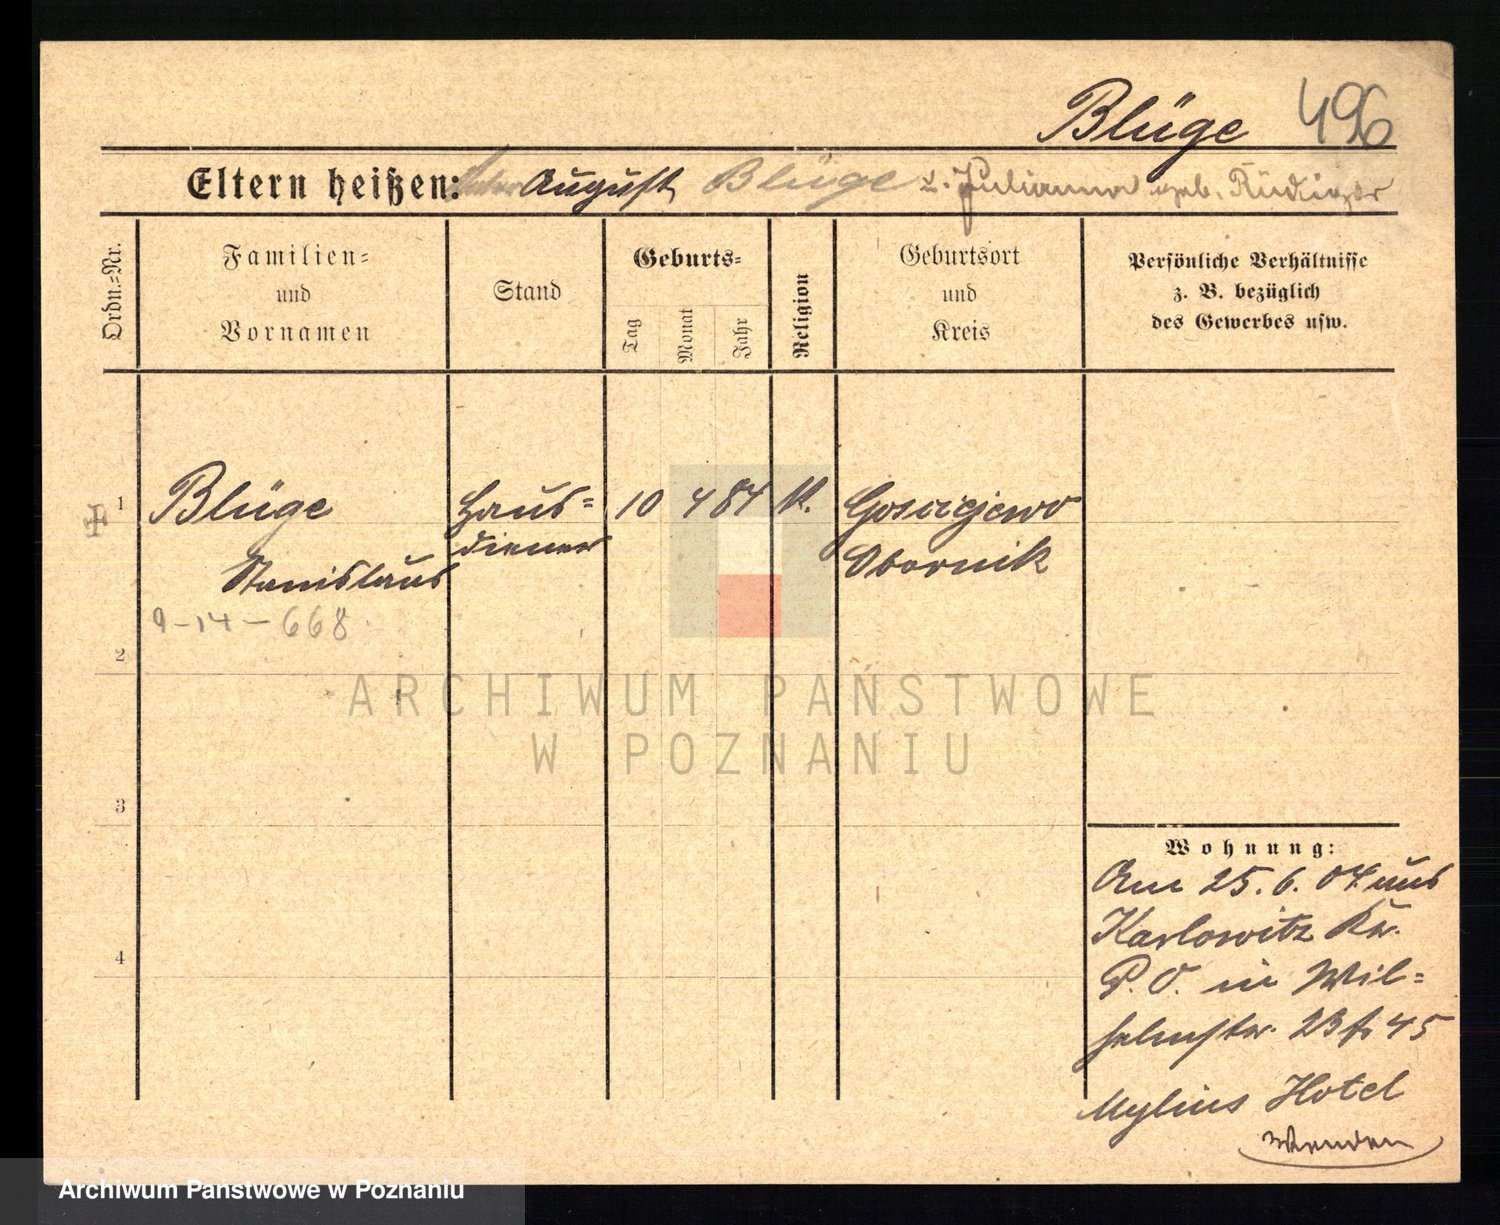 Blüge 496
Eltern heißen: August Blüge u. Julianna geb. Rüdiger
Ordn.=Nr.
Familien=
und
Vornamen
Stand
Geburts=
Tag
Monat
Jahr
Religion
Geburtsort
und
Kreis
Persönliche Verhältnisse
z. B. bezüglich
des Gewerbes usw.
1 Blüge Haus= 10 4 84 K.
diener Obornik
Stanislaus
9-14-668
2
ARCHIWUM PAŃSTWOWE
W POZNANIU
3
4
Wohnung:
Am 25.6.04 aus
Karlowitz Kr.
P. O. in Wil=
helmstr. 23 45
Mylius Hotel
Wenden
Archiwum Państwowe w Poznaniu